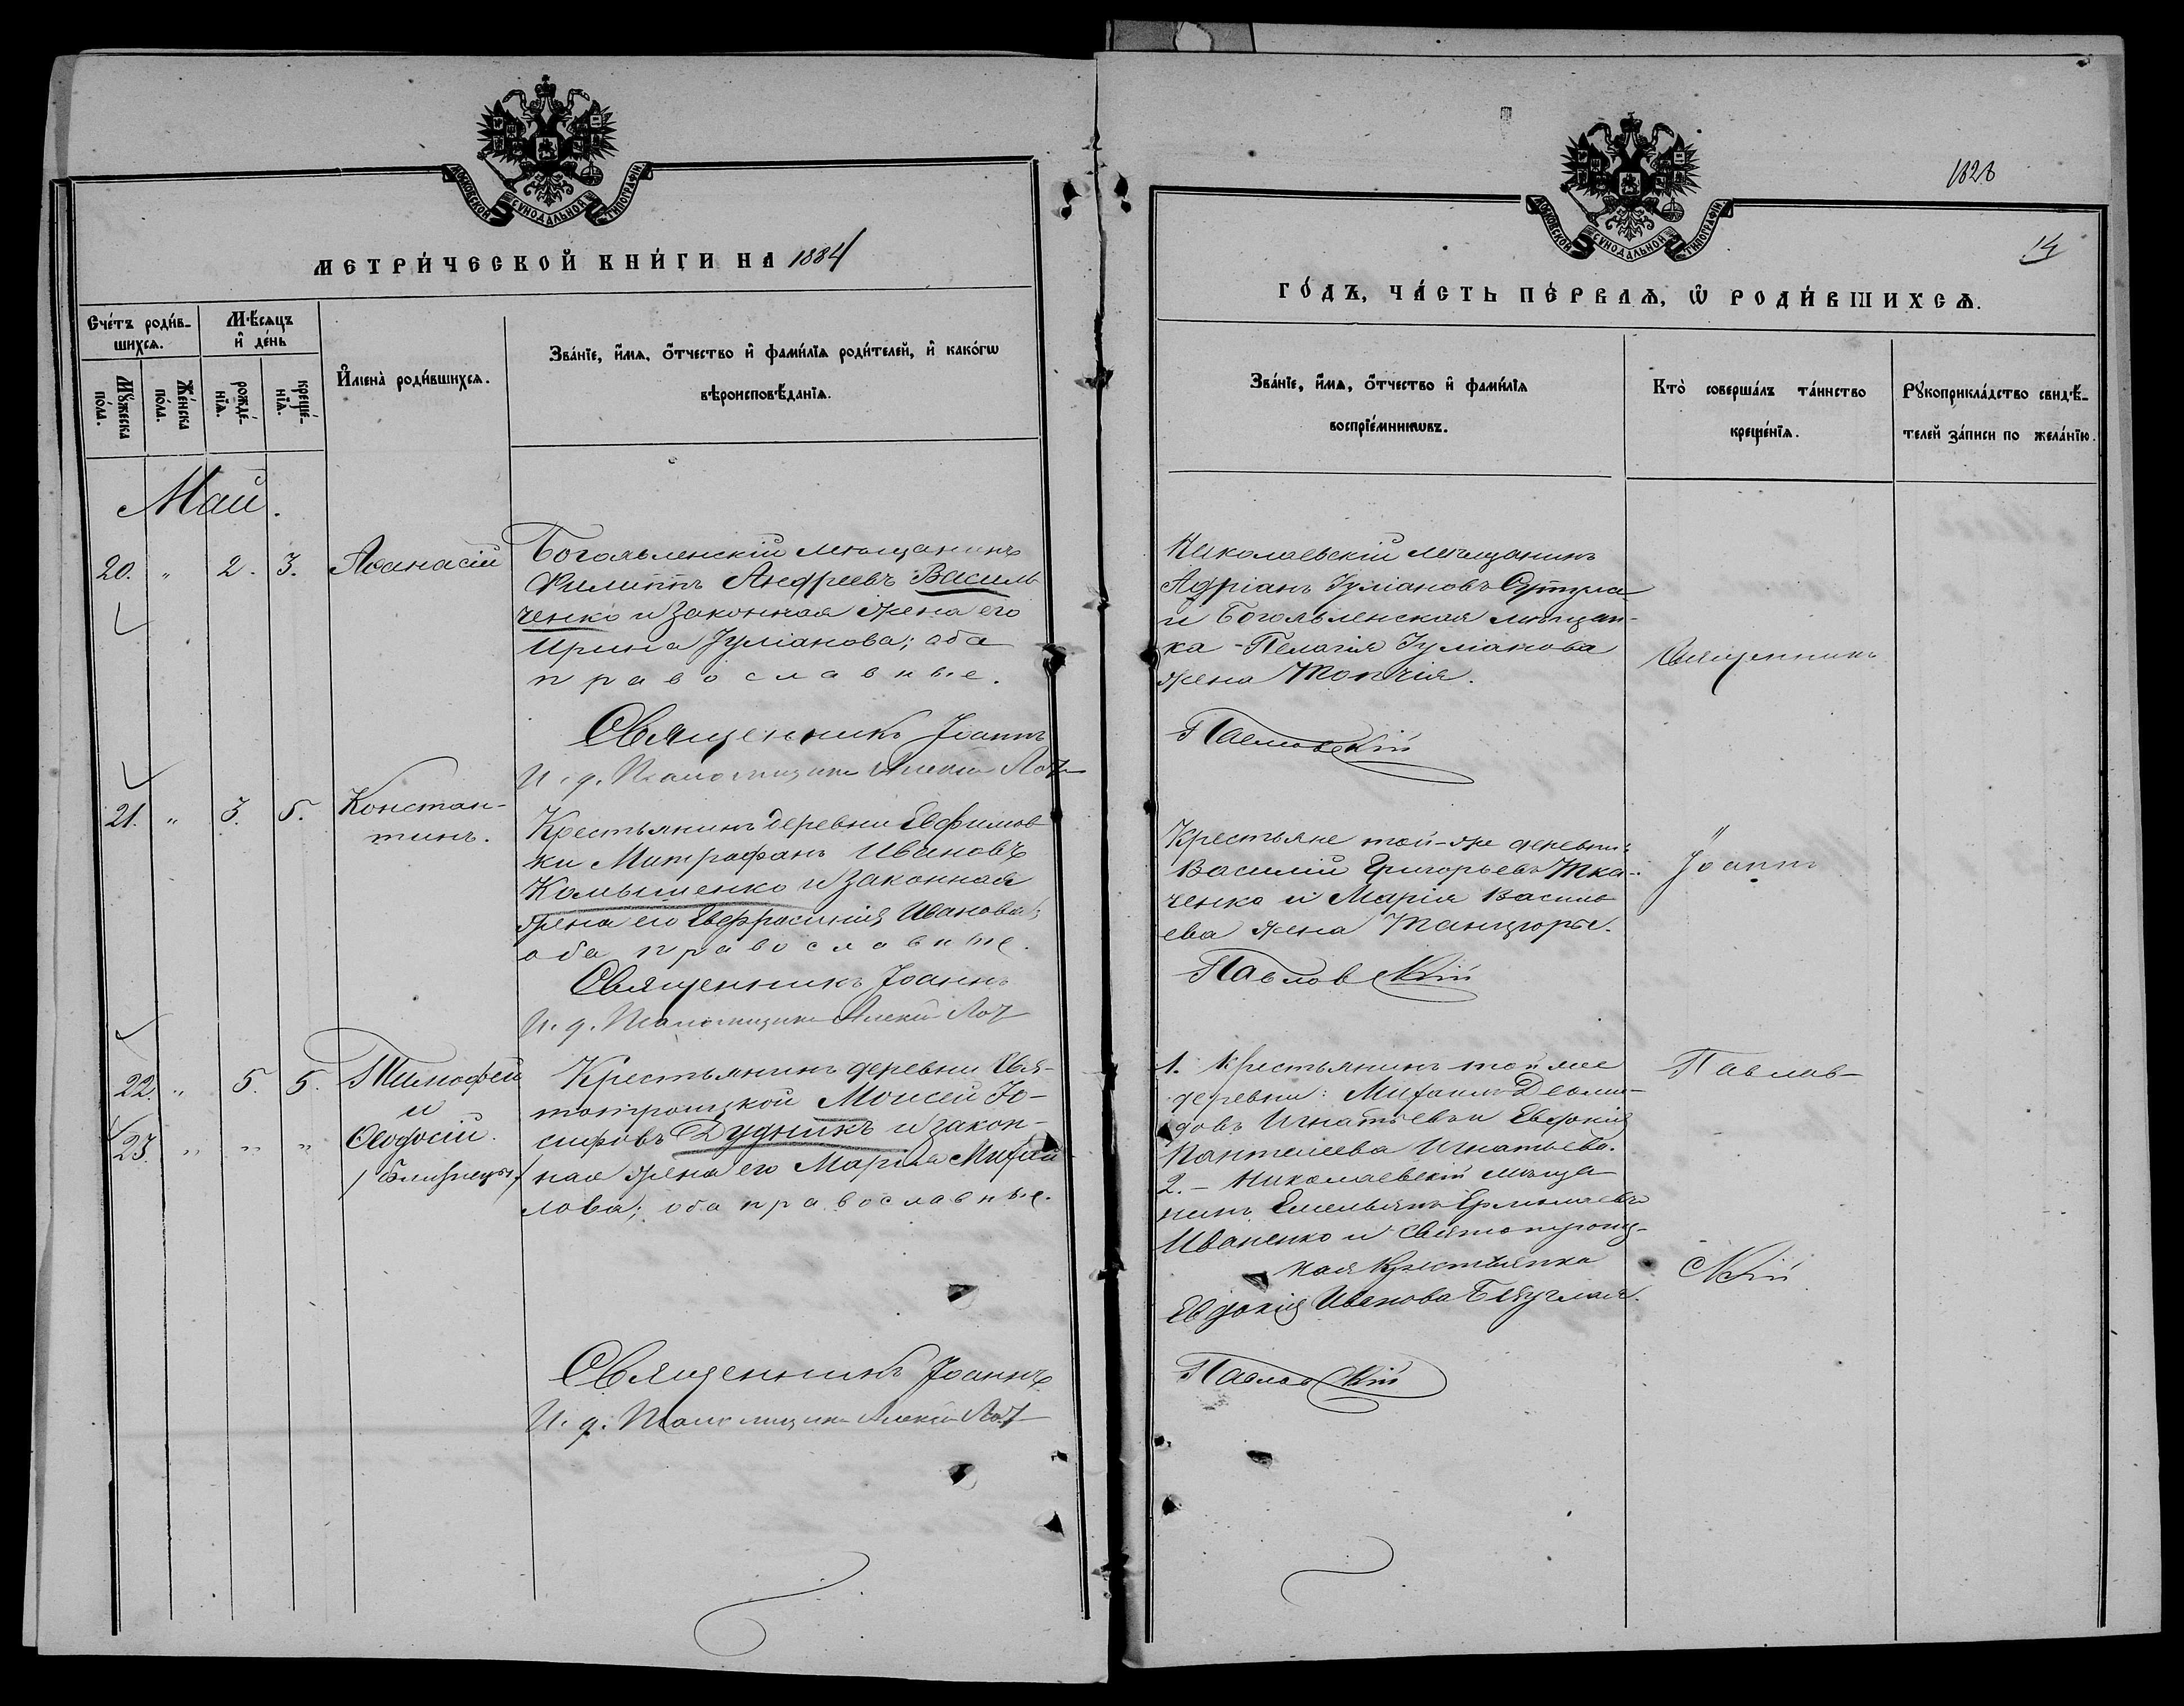 МОСКОВСКОЙ СУНОДАЛЬНОЙ ТИПОГРАФІИ
МЕТРИ́ЧЕСКОЙ КНИ́ГИ НА 1884
Сче́тъ роди́в-
шихсѧ.
Мѣ́сѧцъ
и҆ де́нь
Мꙋ́жеска
по́ла.
Же́нска
по́ла.
рожде́-
нїѧ.
креще́-
нїѧ.
И҆мена̀ роди́вшихсѧ.
Зва́нїе, и҆́мѧ, ѻ҆́тчество и҆ фами́лїѧ роди́телей, и҆ како́гѡ
вѣроисповѣ́данїѧ.
Май.
20. " 2. 3. Аѳанасій
Богоявленскій мѣщанинъ
Филиппъ Андреевъ Василь
ченко и законная жена его
Ирина Іуліанова; оба
православные.
Священникъ Іоаннъ
И. д. Псаломщика Алексій
21. " 3. 5. Констан-
тинъ.
Крестьянинъ деревни Евфимов
ки Митрофанъ Ивановъ
Камышенко и законная
жена его Евфросинія Иванова;
оба православные.
Священникъ Іоаннъ
И. д. Псаломщика Алексій
22. " 5. 5. Тимофей
и
23. " " " Ѳеодосій.
/близнецы/
Крестьянинъ деревни Свя-
тотроицкой Моисей Іо-
сифовъ Дудникъ и закон-
ная жена его Марія Михай
лова; оба православные.
Священникъ Іоаннъ
И. д. Псаломщика Алексій
МОСКОВСКОЙ СУНОДАЛЬНОЙ ТИПОГРАФІИ
1828
14
ГО́ДЪ, ЧА́СТЬ ПЕ́РВАѦ, Ѽ РОДИ́ВШИХСѦ.
Зва́нїе, и҆́мѧ, ѻ҆́тчество и҆ фами́лїѧ
воспрїе́мникѡвъ.
Кто̀ соверша́лъ та́инство
креще́нїѧ.
Рꙋкоприкла́дство свидѣ́-
телей за́писи по жела́нїю.
Николаевскій мѣщанинъ
Адріанъ Іуліановъ
и Богоявленская мѣщан-
ка - Пелагія Іуліанова
жена Топчія.
Павловскій
Священникъ
Крестьяне той-же деревни:
Василій Григорьевъ Тка-
ченко и Марія Василь
ева жена Танцюры.
Павловскій
Іоаннъ
1. Крестьянинъ той же
деревни: Михаилъ Деми-
довъ Игнатьевъ и Евдокія
Пантелеева Игнатьева.
2. - Николаевскій мѣща
нинъ Емельянъ Ермолаевъ
Иваненко и Святотроиц-
кая крестьянка
Евдокія Иванова
Павловскій
Павлов-
скій